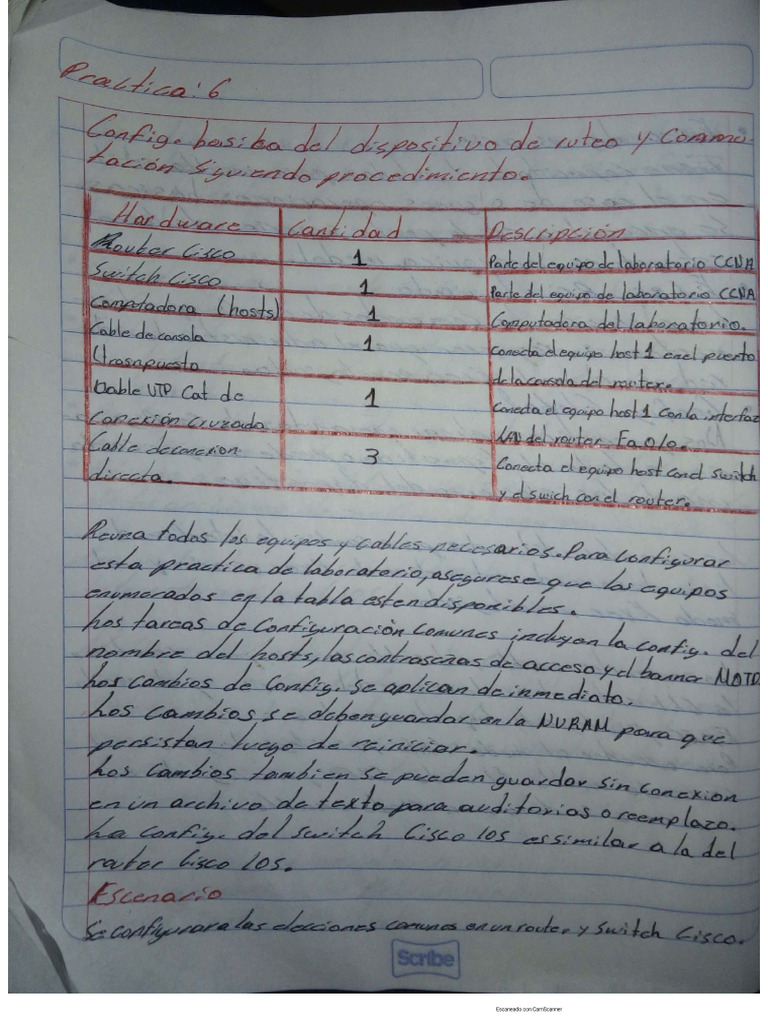 Practica: 6
Config. basiba del dispositivo de ruteo y Conmu-
tación siguiendo procedimiento.
Hardware Cantidad Descripción
Router Cisco 1 Parte del equipo de laboratorio CCNA
Switch Cisco 1 Parte del equipo de laboratorio CCNA
Computadora (hosts) 1 Computadora del laboratorio.
Cable de consola 1 conecta el equipo host 1 en el puento
(trasnpuesto de la consola del router.
Cable UTP Cat de 1 conecta el equipo host 1 con la interfaz
Conexión Cruzada LAN del router Fa 0/0.
Cable de conexion 3 Conecta el equipo host con el switch
directa. y el swich con el router.
Reuna todos los equipos y cables necesarios. Para configurar
esta practica de laboratorio, asegurese que los equipos
enumerados en la tabla esten disponibles.
Los tareas de Configuración comunes incluyen la config. del
nombre del hosts, las contraseñas de acceso y el banner MOTD.
Los cambios de Config. se aplican de inmediato.
Los cambios se deben guardar en la NVRAM para que
persistan luego de reiniciar.
Los cambios tambien se pueden guardar sin conexion
en un archivo de texto para auditorios o reemplazo.
La config. del switch Cisco IOS es similar a la del
router Cisco IOS.
Escenario
Se configurara las elecciones comunes en un router y switch Cisco.
Scribe
Escaneado con CamScanner